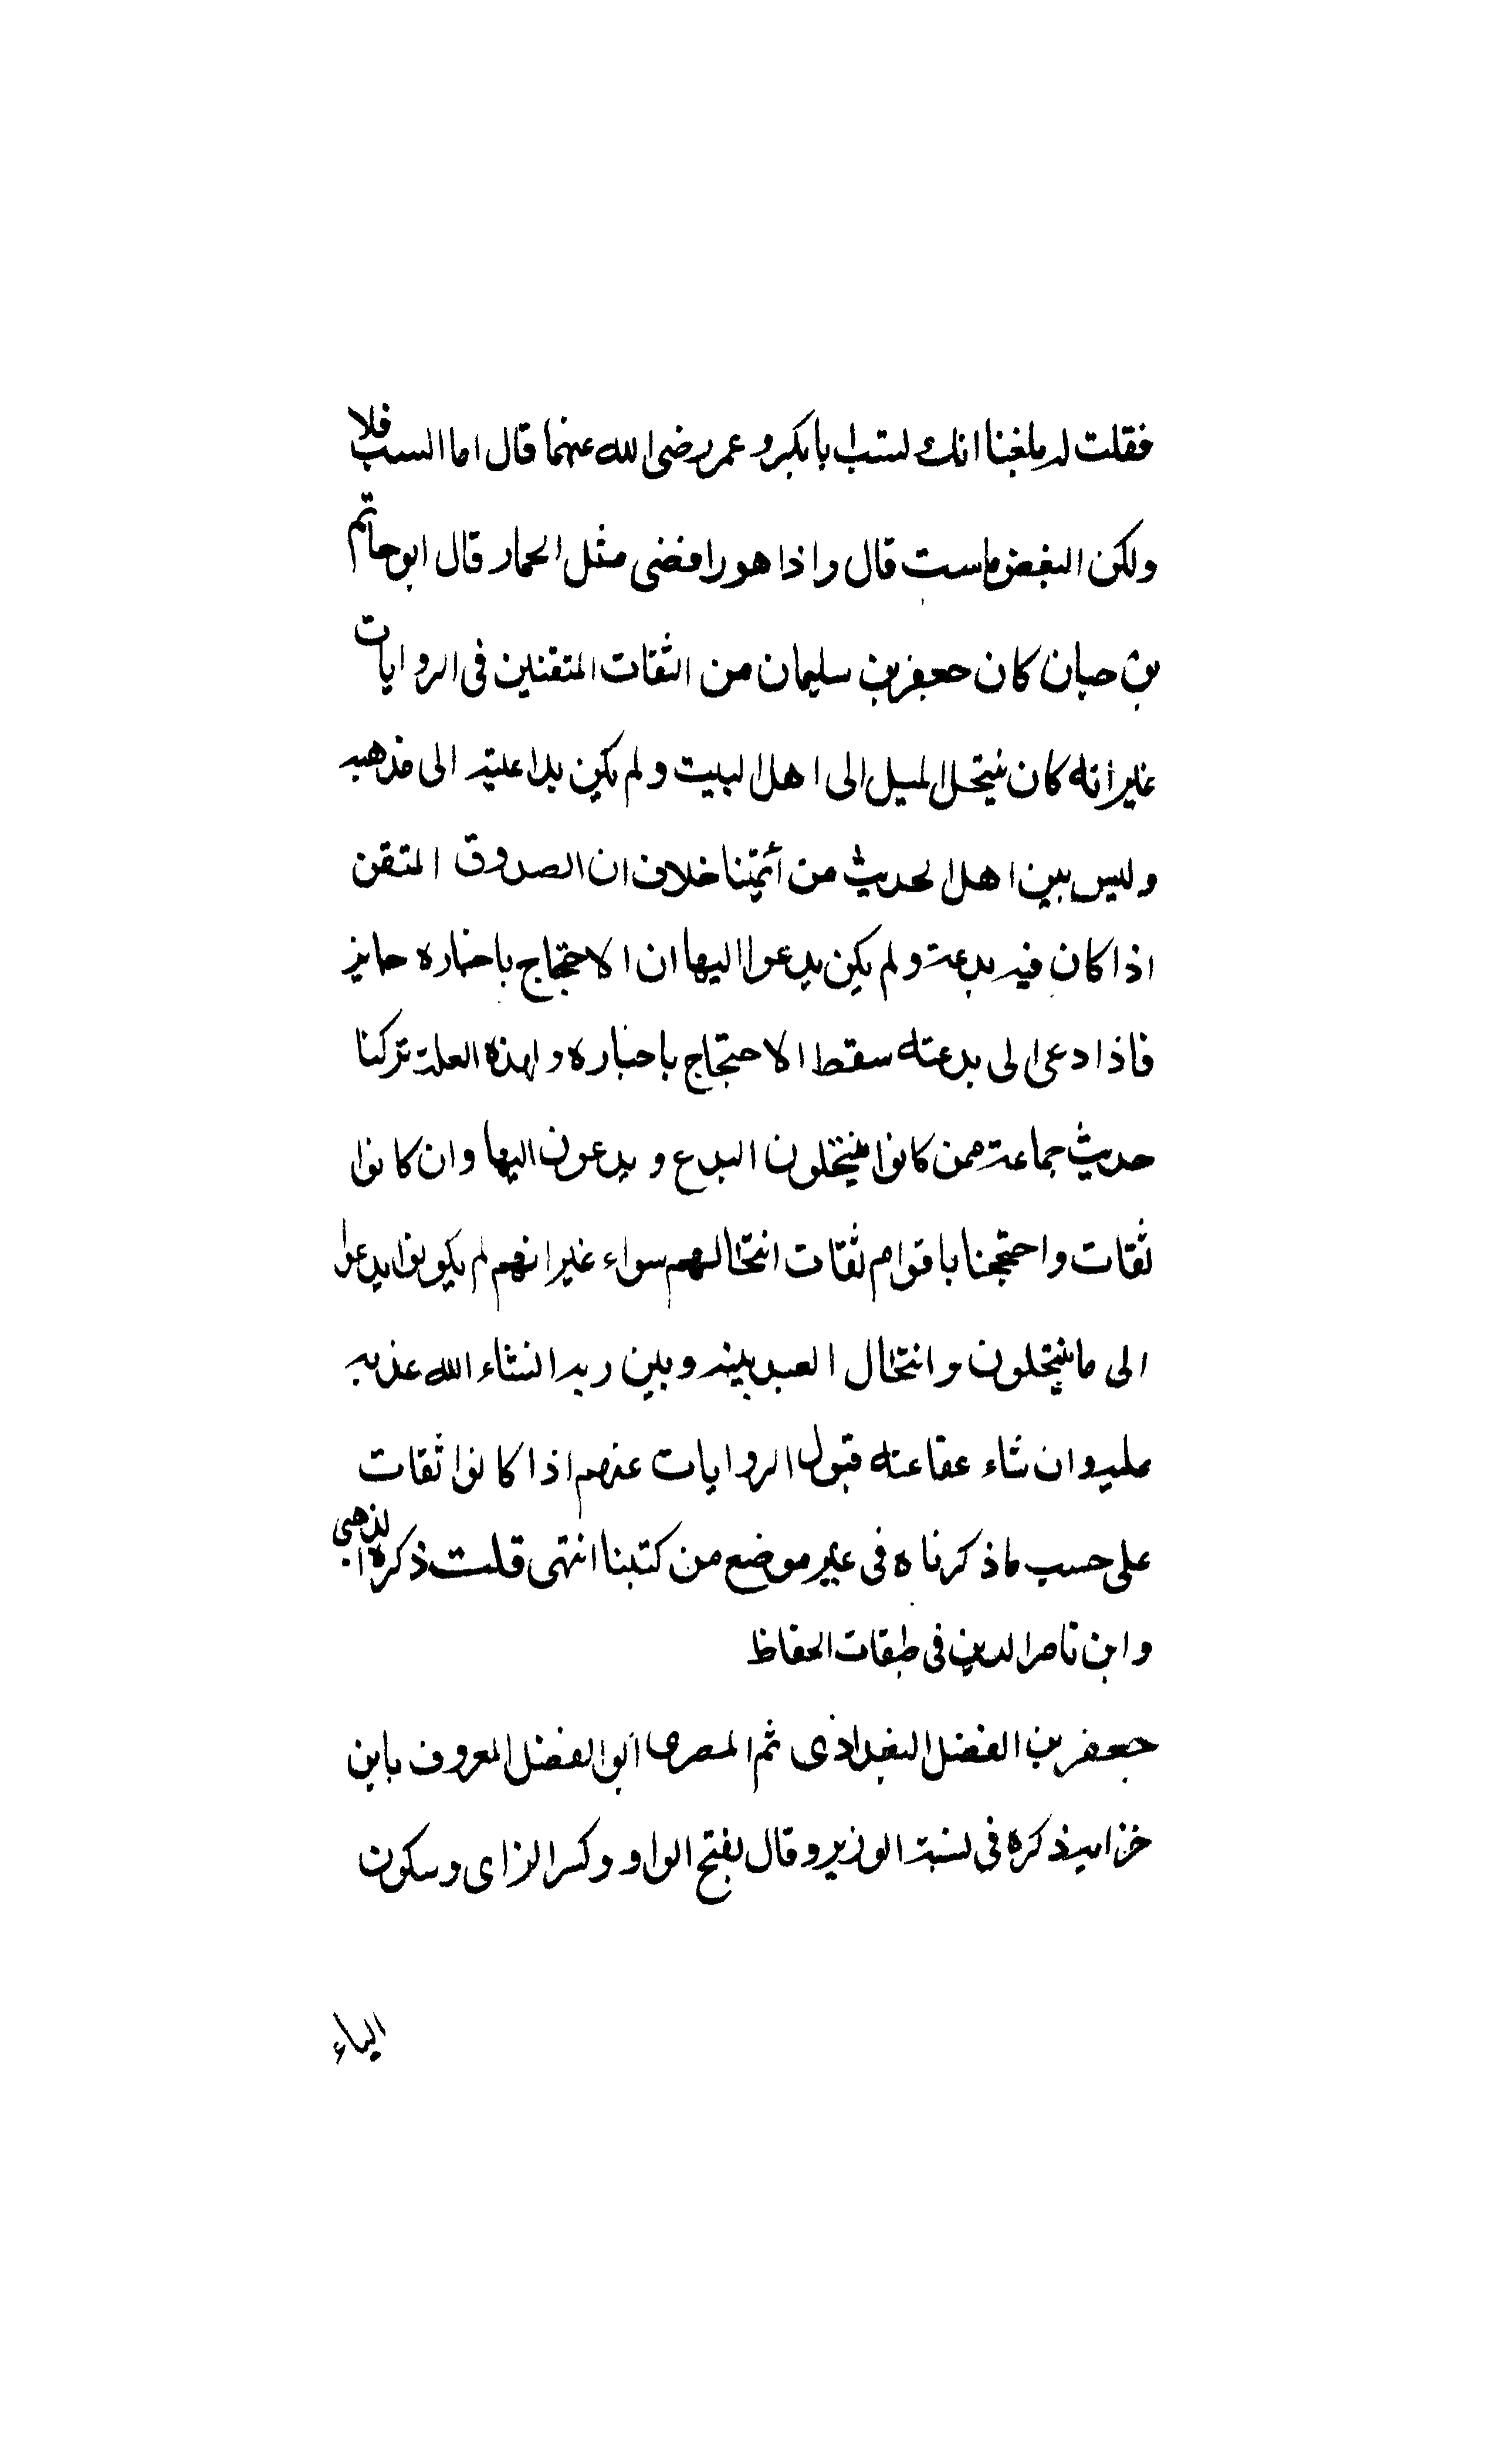 فقلت له بلغنا انك تسب ابا بكر و عمر رضى الله عنهما قال اما السب فلا
ولكن البغض ماست قال واذا هو رافضى مثل الحمار قال ابو حاتم
بن حبان كان جعفر بن سليمان من الثقات المتقنين فى الروايات
غير انه كان ينتحل الميل الى اهل البيت و لم يكن بداعية الى مذهبه
وليس بين اهل الحديث من أئمتنا خلاف ان الصدوق المتقن
اذا كان فيه بدعة و لم يكن يدعوا اليها ان الاحتجاج باخباره جايز
فاذا دعى الى بدعته سقط الاحتجاج باخباره و لهذه العلة تركنا
حديث جماعة ممن كانوا ينتحلون البدع و يدعون اليها وان كانوا
ثقات واحتججنا باقوام ثقات انتحالهم سواء غير انهم لم يكونوا يدعوا
الى ما ينتحلون وانتحال العبد بينه وبين ربه ان شاء الله عذبه
عليه وان شاء عفا عنه قبول الروايات عنهم اذا كانوا ثقات
على حسب ماذكرناه فى غير موضع من كتبنا انتهى قلت ذكره الذهبى
وابن ناصر الدين فى طبقات الحفاظ
جعفر بن الفضل البغداذى ثم المصرى ابو الفضل المعروف بابن
خزابه ذكره فى نسبة الوزير وقال بفتح الواو وكسر الزاى وسكون
الياء